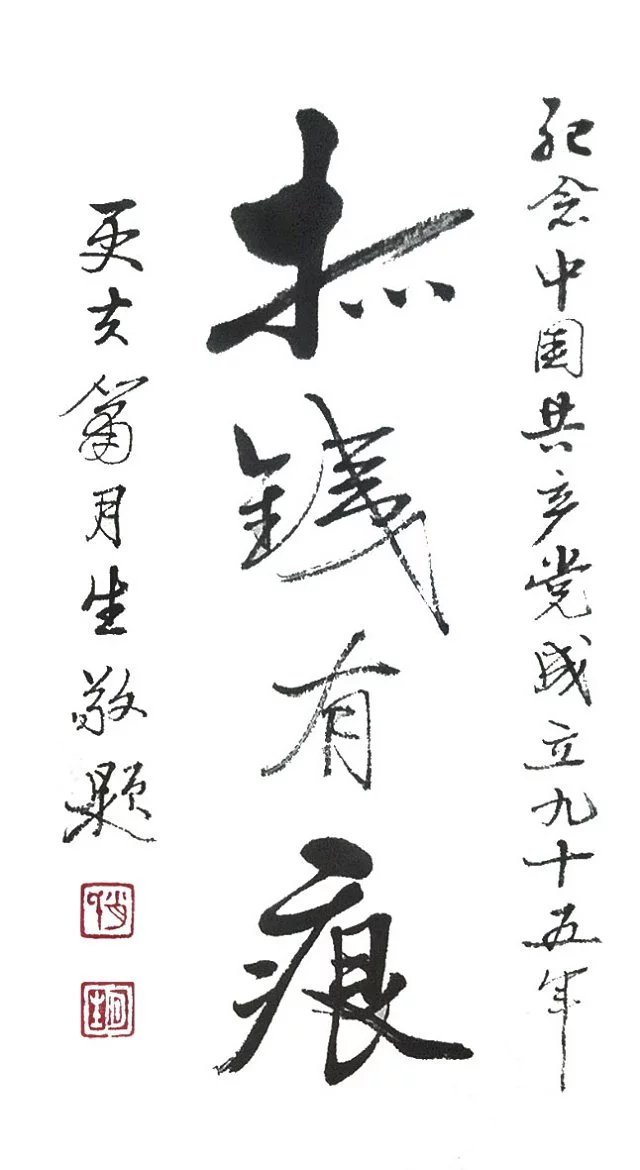 纪念中国共产党成立九十五年
抓鐵有痕
月生敬题